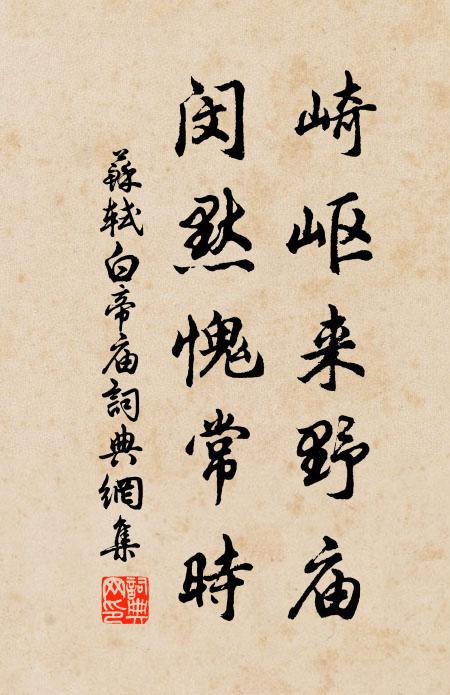 崎岖来野庙
闵默愧常時
蘇軾白帝庙詞典網集
詞典
网印